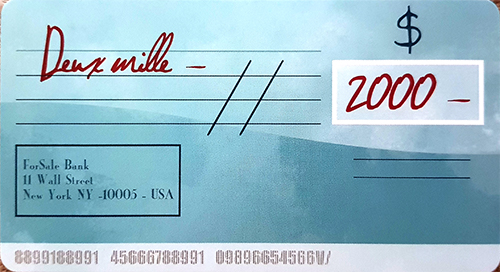 $ 2000 -
Deux mille - //
ForSale Bank
11 Wall Street
New York NY -10005 - USA
8899188991 45666788991 0989665456 6W/